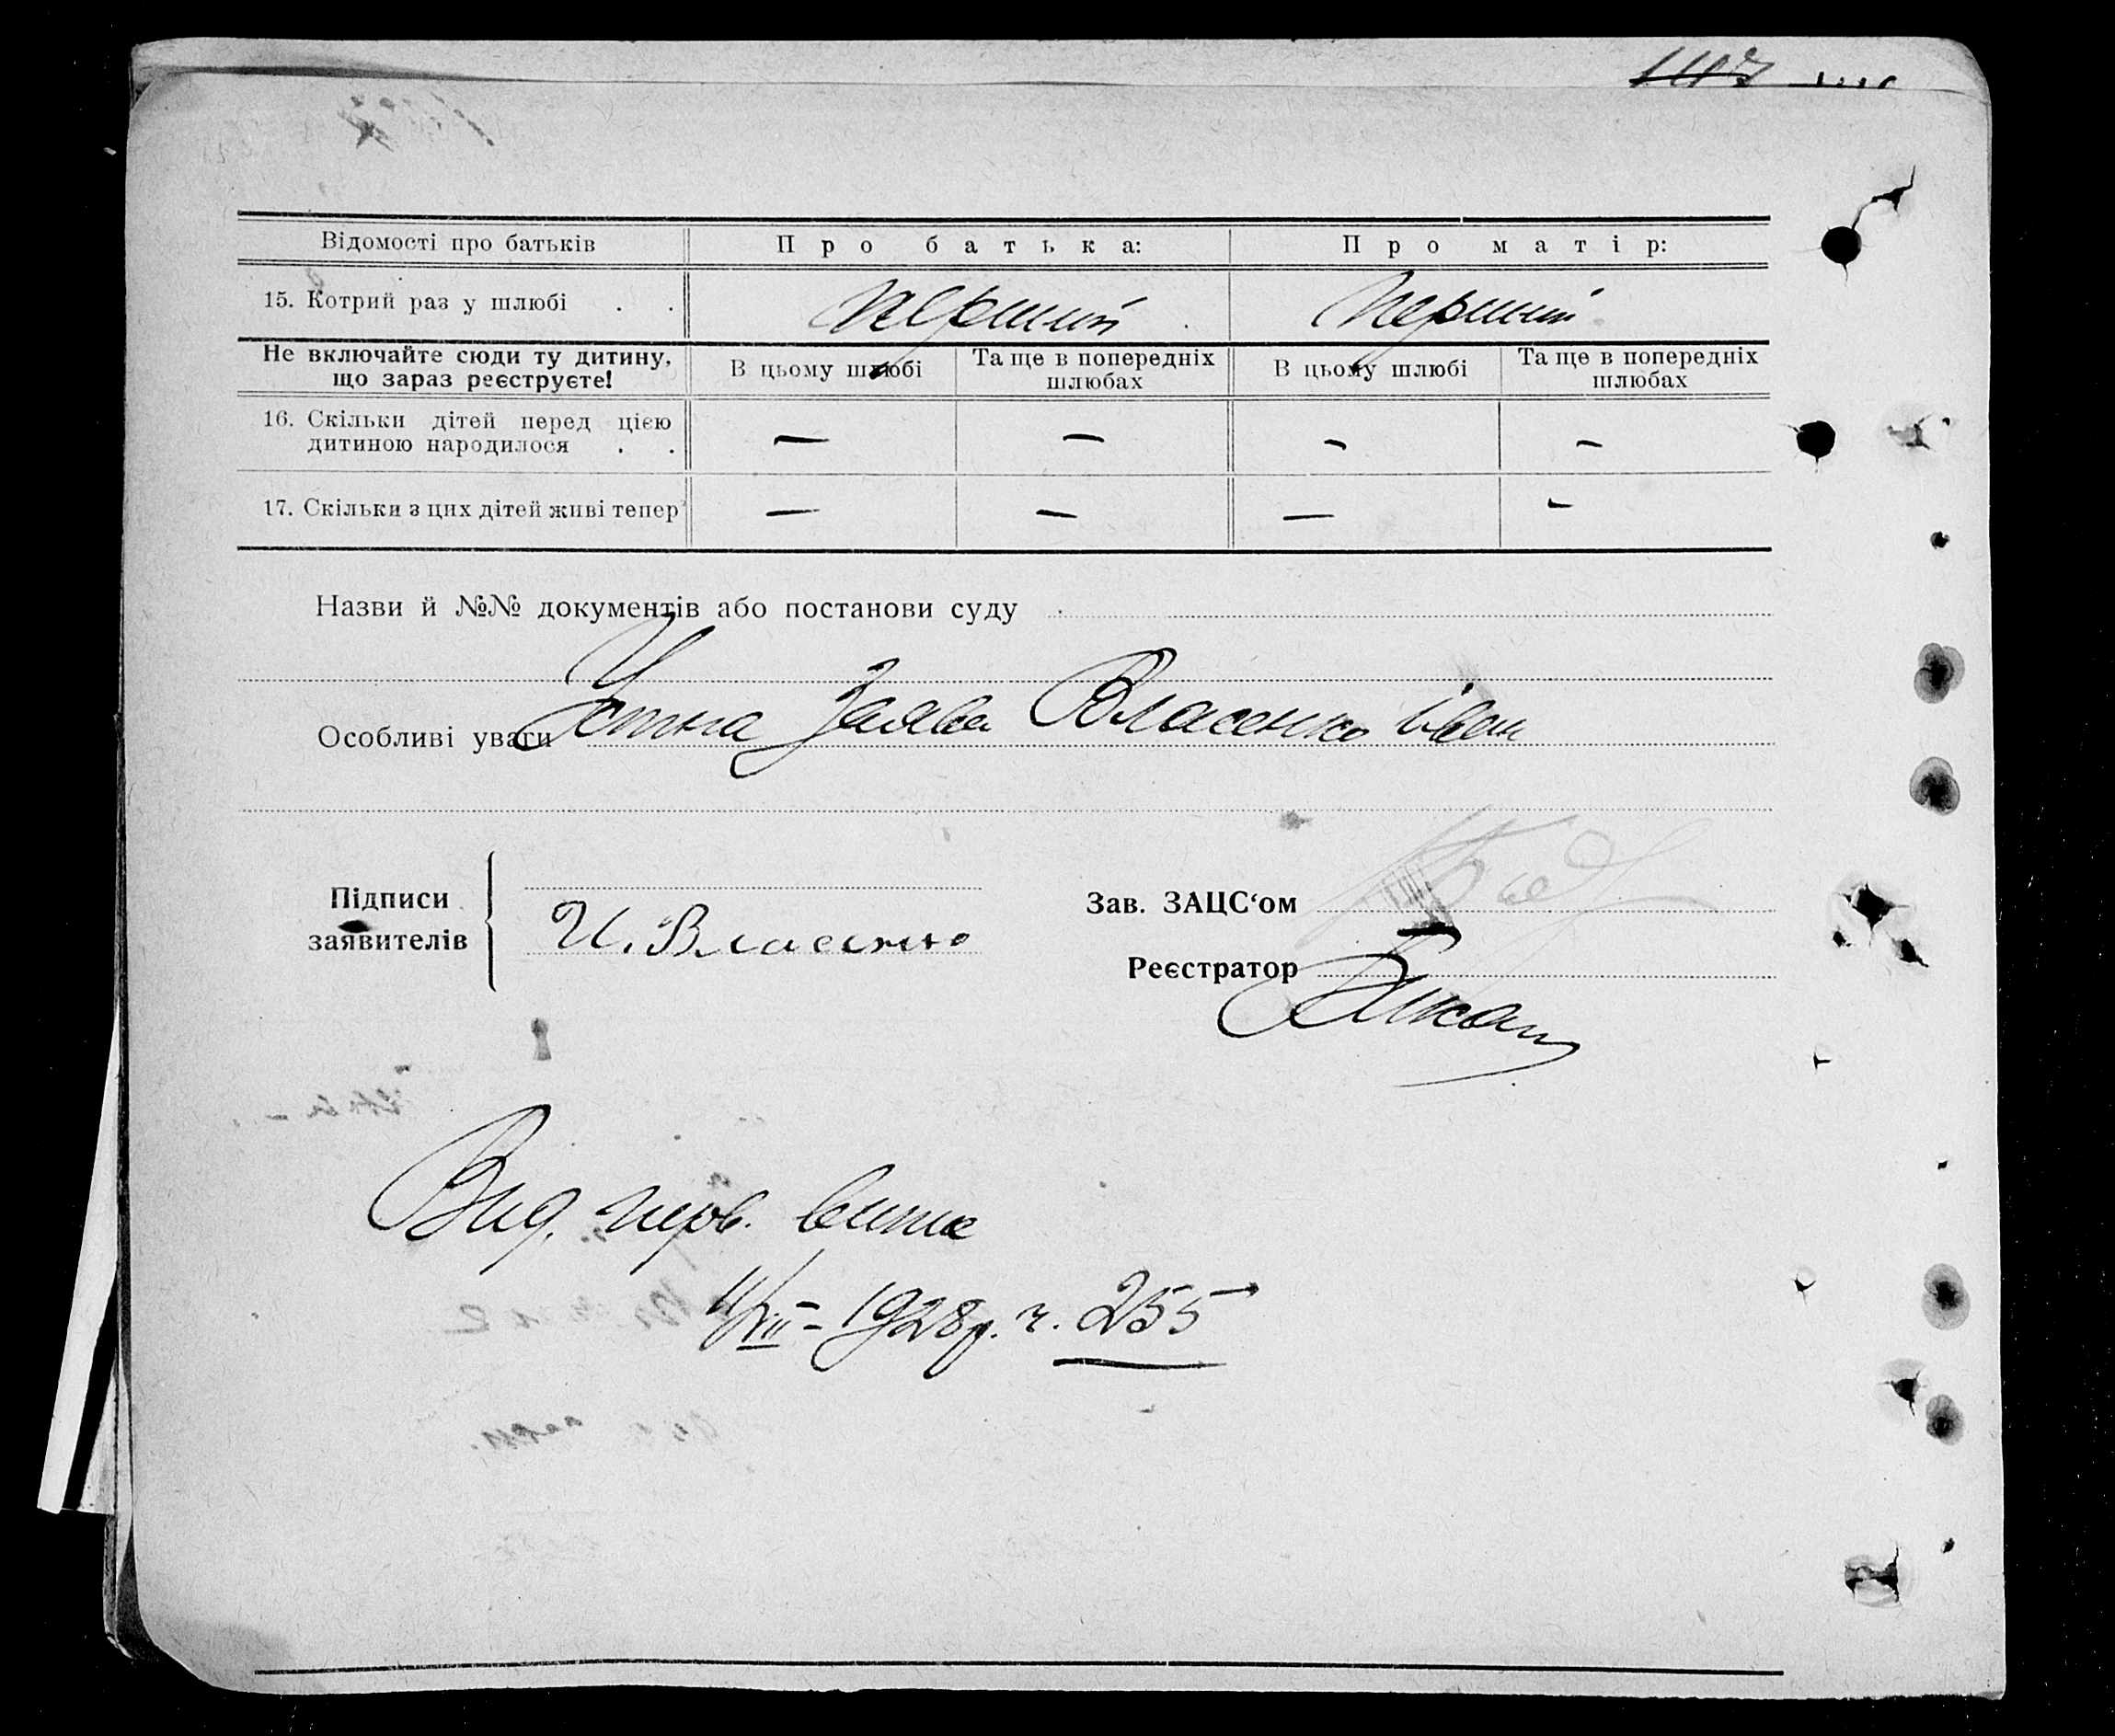 Відомості про батьків Про батька: Про матір:
15. Котрий раз у шлюбі . . Перший Перший
Не включайте сюди ту дитину, що зараз реєструєте! В цьому шлюбі Та ще в попередніх шлюбах В цьому шлюбі Та ще в попередніх шлюбах
16. Скільки дітей перед цією дитиною народилося . . — — — —
17. Скільки з цих дітей живі тепер — — — —
Назви й №№ документів або постанови суду
Устна Заява Власенко Іван
Особливі уваги
Підписи заявителів
И. Власенко
Зав. ЗАЦС‘ом
Реєстратор
Вид. перв. витяг
11/VII – 1928 р. ч. 255